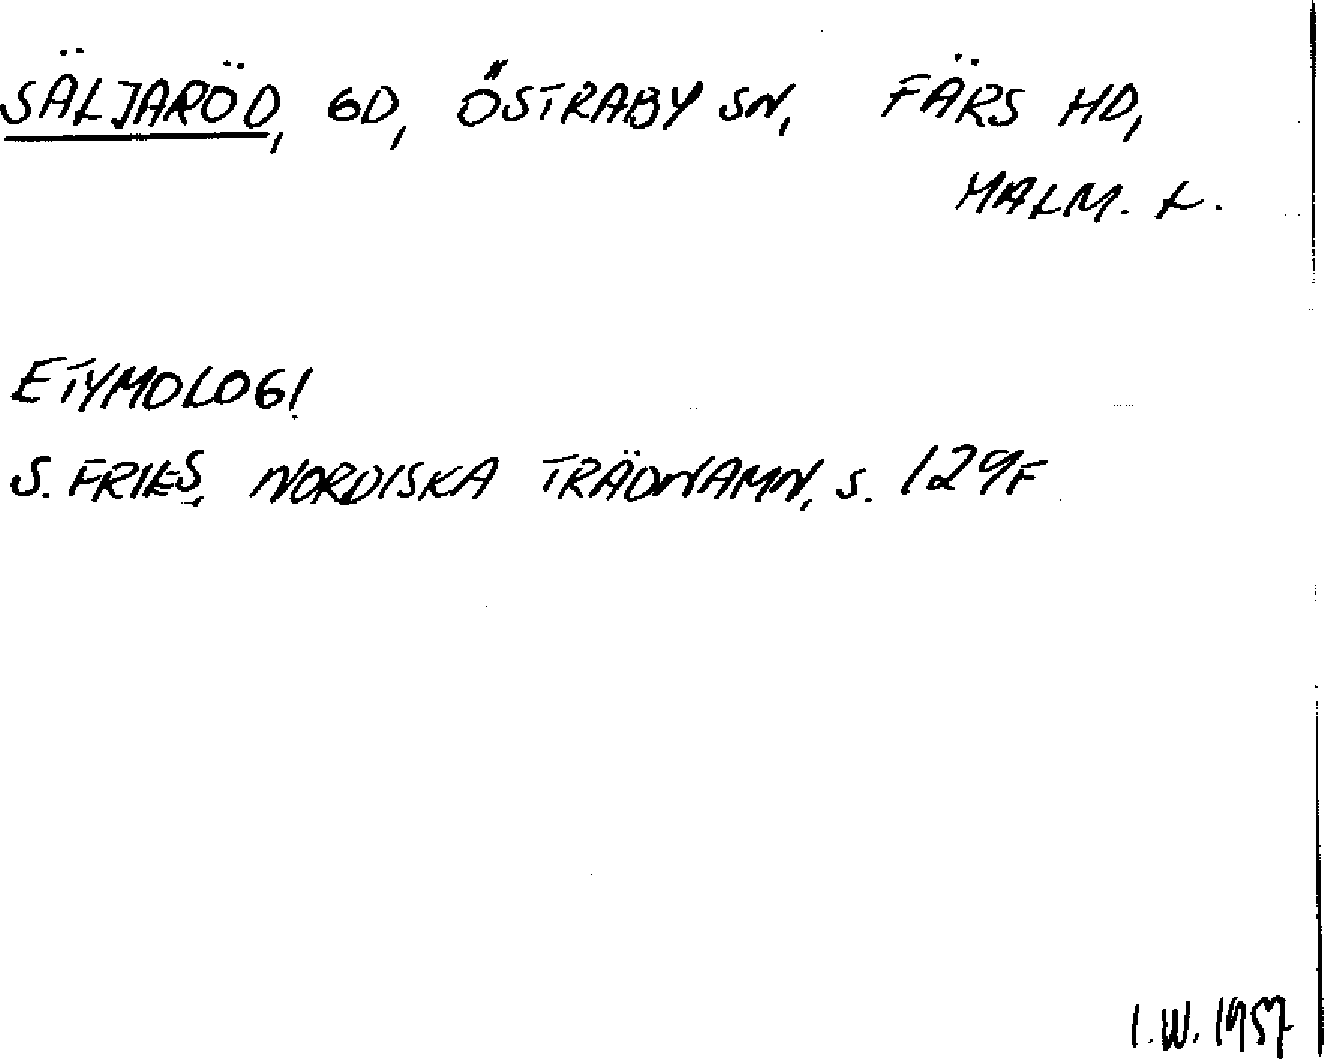 SÄLJARÖD, GD, ÖSTRABY SN, FÄRS HD,
MALM. L.
ETYMOLOGI
S. FRIES, NORDISKA TRÄDNAMN, S. 129F
I.W. 1957